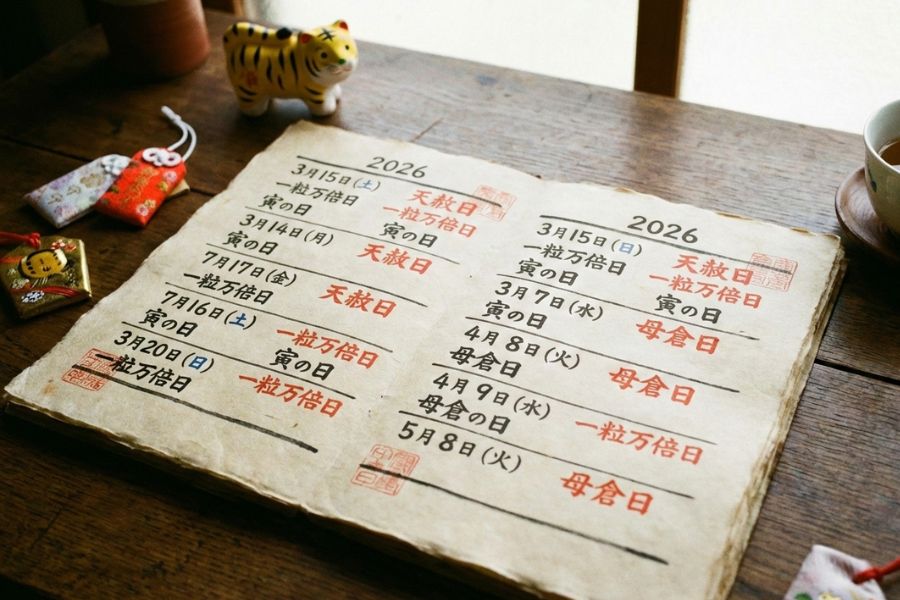 2026
3月15日(土)
一粒万倍日 天赦日
寅の日 一粒万倍日
3月14日(月) 寅の日
寅の日 天赦日
7月17日(金)
一粒万倍日 天赦日
7月16日(土)
寅の日 一粒万倍日
3月20日(日) 寅の日
一粒万倍日 一粒万倍日
2026
3月15日(日)
一粒万倍日 天赦日
寅の日 一粒万倍日
3月7日(水) 寅の日
寅の日 母倉日
4月8日(火)
母倉日 母倉日
4月9日(水)
母倉の日 一粒万倍日
5月8日(火)
母倉日